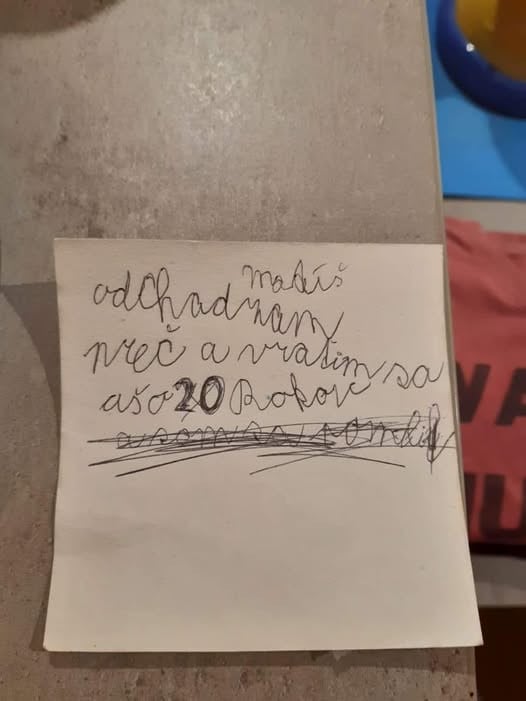 Matúš
odchadzam
preč a vratim sa
ašo 20 Rokov